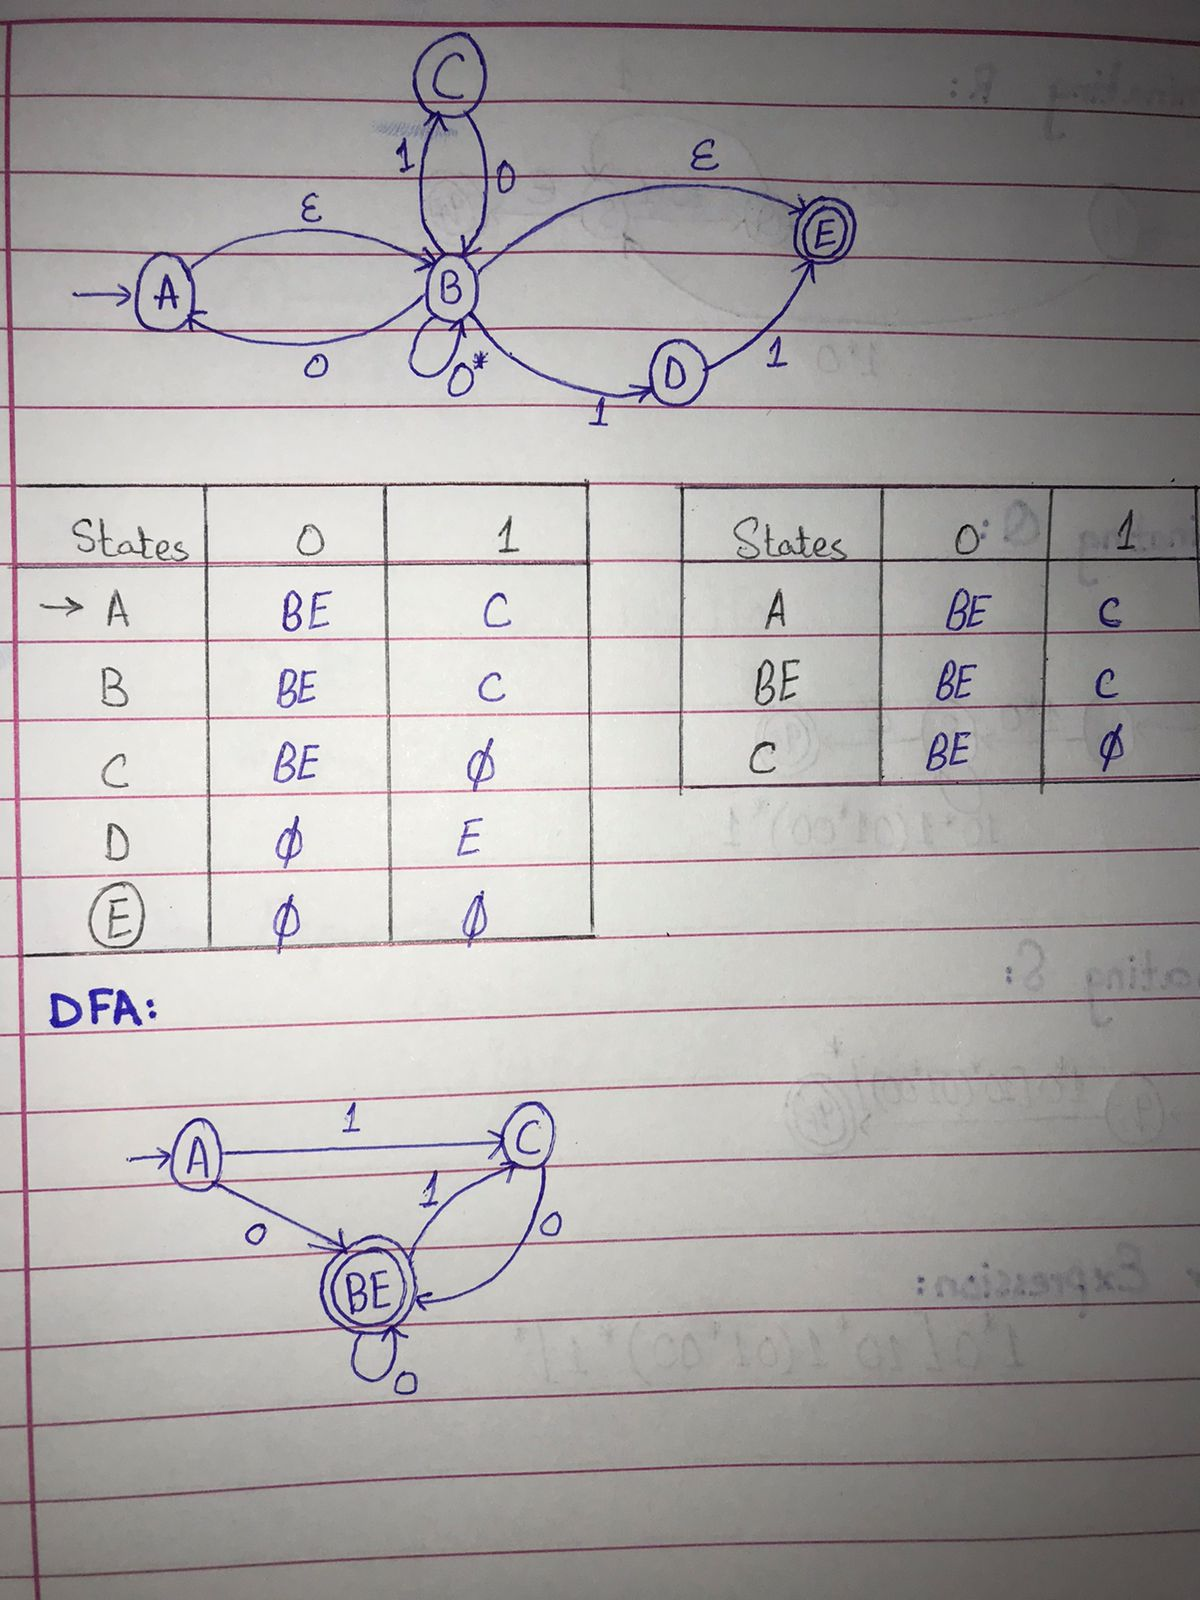 C
1 0
ε ε
E
A B
0 0* D 1
1
States 0 1
→ A BE C
B BE C
C BE ϕ
D ϕ E
E ϕ ϕ
States 0 1
A BE C
BE BE C
C BE ϕ
DFA:
1
A C
0 1 0
BE
0